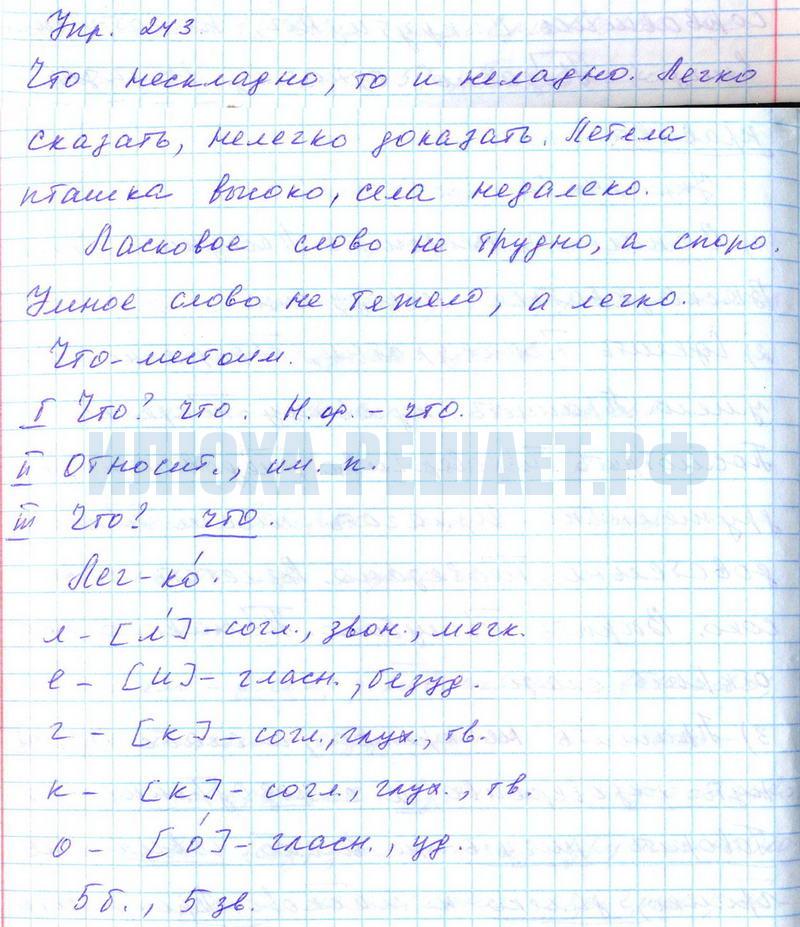 Упр. 243.
Что нескладно, то и неладно. Легко
сказать, нелегко доказать. Летела
пташка высоко, села недалеко.
Ласковое слово не трудно, а споро.
Умное слово не тяжело, а легко.
Что-местоим.
I Что? что. Н.ф. – что.
ИЛЮХА-РЕШАЕТ.РФ
II Относит., им. п.
III Что? что.
Лег-ко́.
л – [л'] – согл., звон., мягк.
е – [и] – гласн., безуд.
г – [к] – согл., глух., тв.
к – [к] – согл., глух., тв.
о – [о́] – гласн., уд.
5б., 5зв.